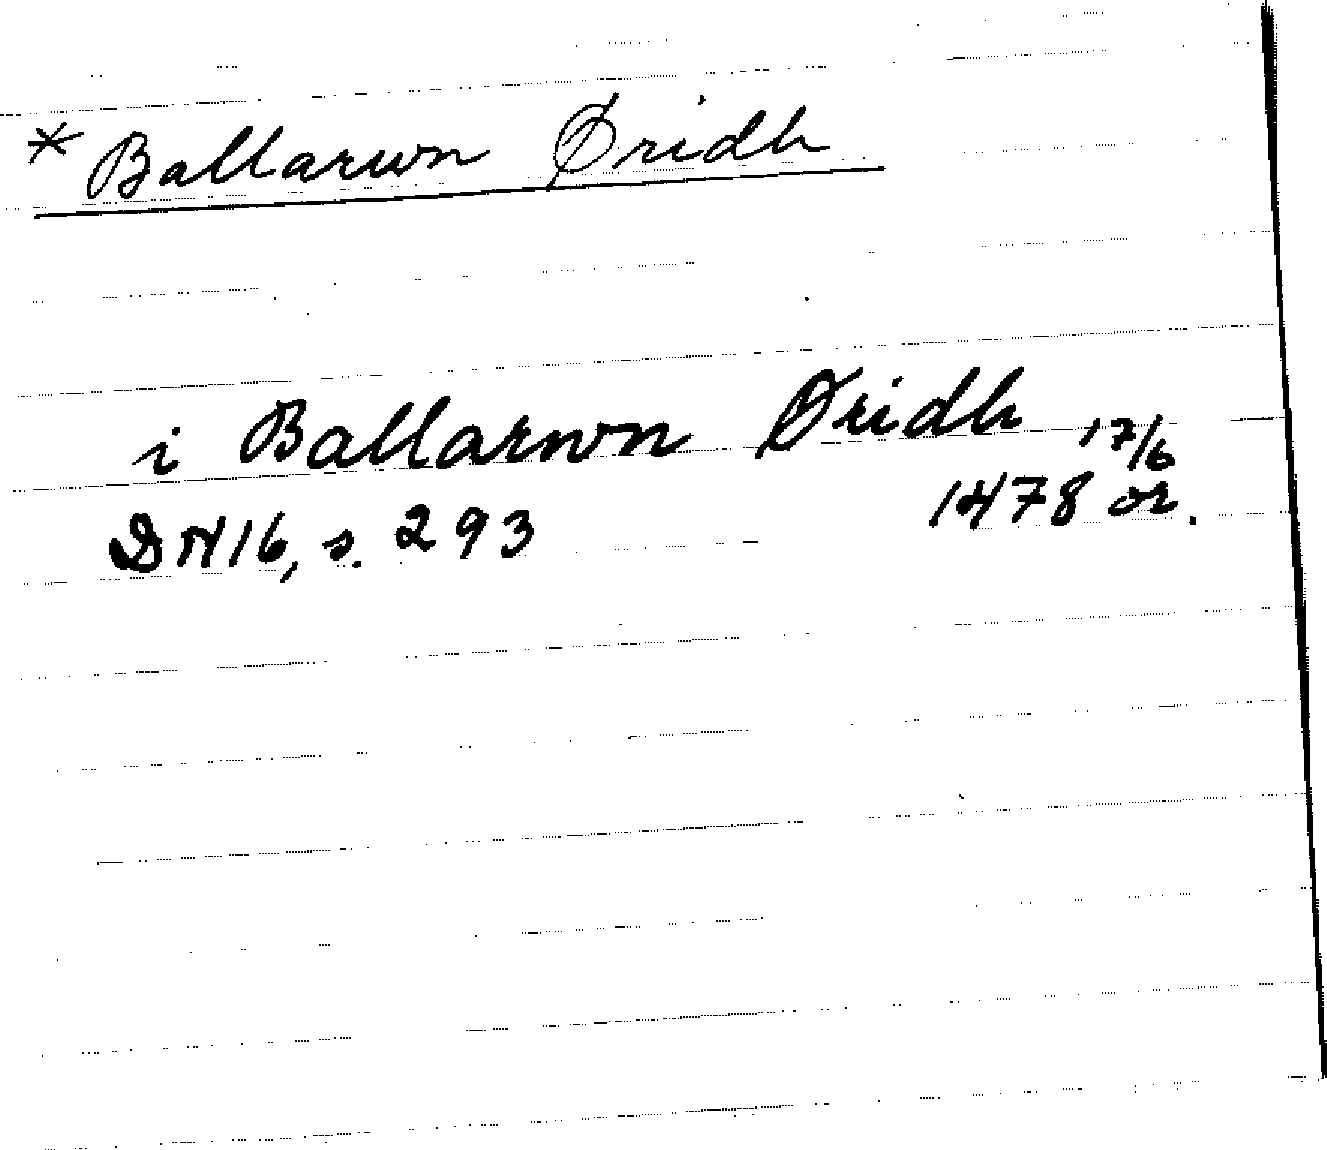 * Ballarwn Øridh
i Ballarwn Øridh 17/6
DN 16, s. 293 1478 or.